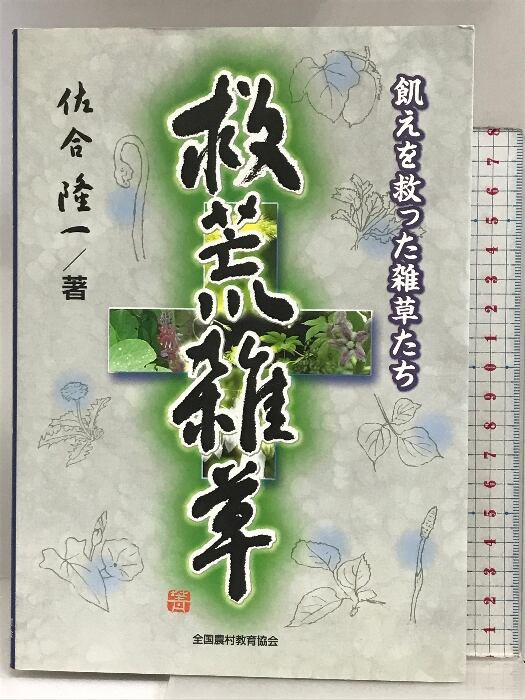 飢えを救った雑草たち
救荒雑草
佐合隆一／著
全国農村教育協会
8
7
6
5
4
3
2
1
0
9
8
7
6
5
4
3
2
1